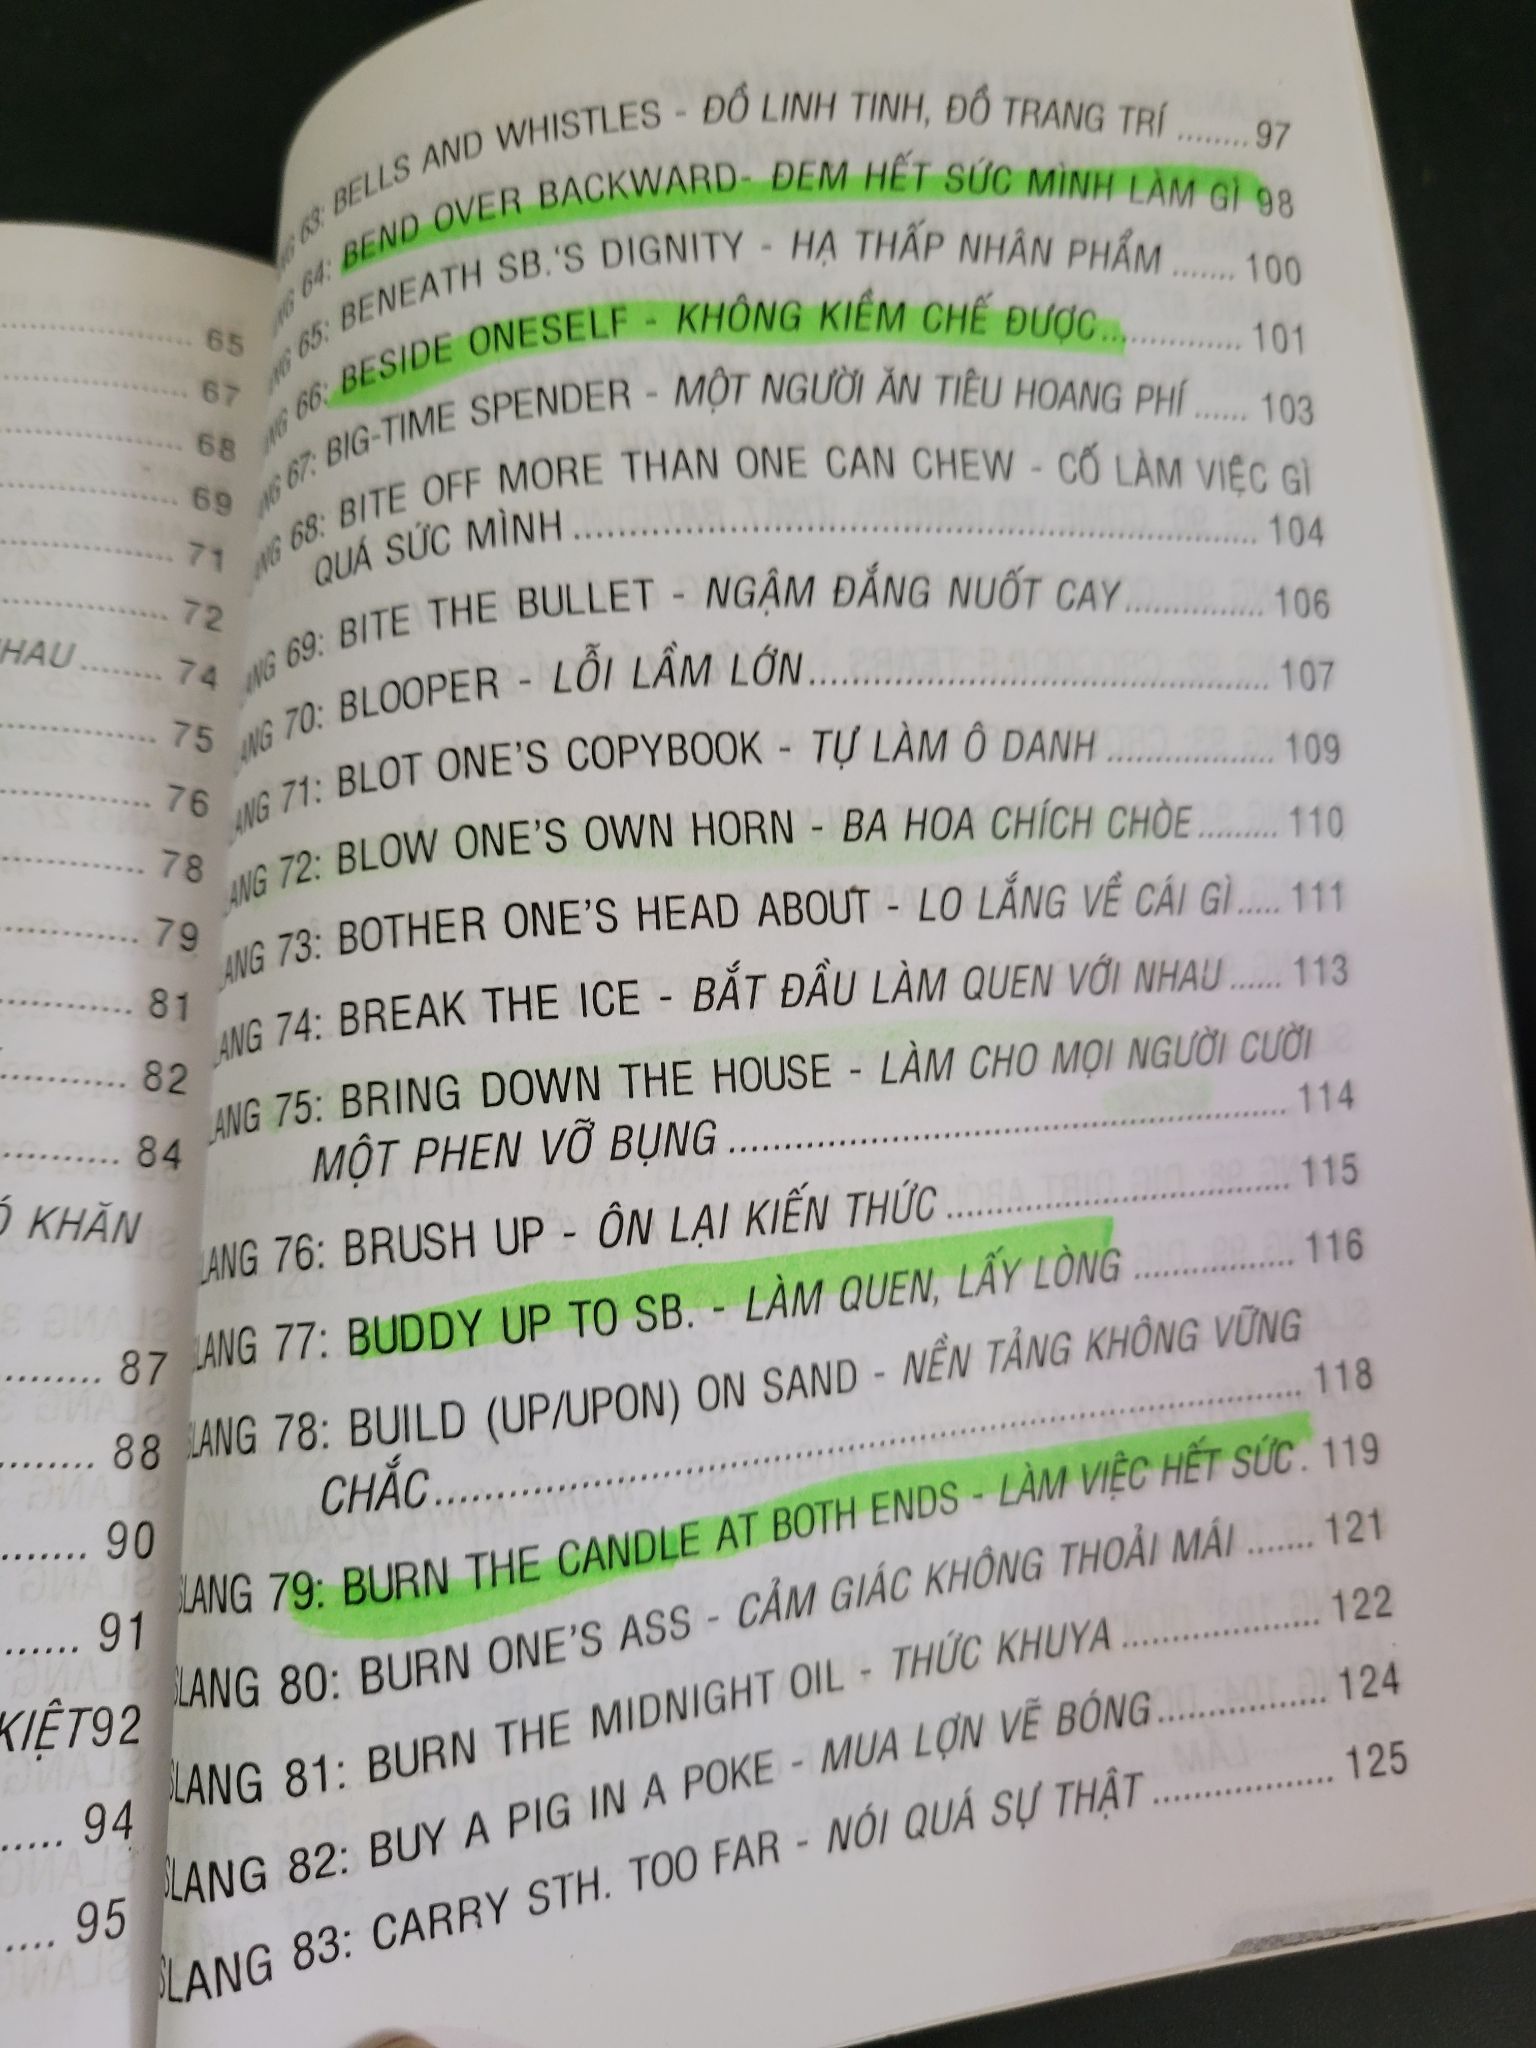 65
67
68
69
71
72
HAU ....... 74
75
76
78
79
81
82
84
KHĂN
87
88
90
91
KIỆT92
94
95
63: BELLS AND WHISTLES - ĐỒ LINH TINH, ĐỒ TRANG TRÍ ........ 97
64: BEND OVER BACKWARD- ĐEM HẾT SỨC MÌNH LÀM GÌ 98
65: BENEATH SB.'S DIGNITY - HẠ THẤP NHÂN PHẨM ....... 100
66: BESIDE ONESELF - KHÔNG KIỀM CHẾ ĐƯỢC ............... 101
67: BIG-TIME SPENDER - MỘT NGƯỜI ĂN TIÊU HOANG PHÍ ...... 103
68: BITE OFF MORE THAN ONE CAN CHEW - CỐ LÀM VIỆC GÌ
QUÁ SỨC MÌNH ........................................................ 104
LANG 69: BITE THE BULLET - NGẬM ĐẮNG NUỐT CAY .............. 106
LANG 70: BLOOPER - LỖI LẦM LỚN ............................................. 107
LANG 71: BLOT ONE'S COPYBOOK - TỰ LÀM Ô DANH ................. 109
LANG 72: BLOW ONE'S OWN HORN - BA HOA CHÍCH CHÒE ......... 110
LANG 73: BOTHER ONE'S HEAD ABOUT - LO LẮNG VỀ CÁI GÌ ..... 111
LANG 74: BREAK THE ICE - BẮT ĐẦU LÀM QUEN VỚI NHAU ...... 113
LANG 75: BRING DOWN THE HOUSE - LÀM CHO MỌI NGƯỜI CƯỜI
MỘT PHEN VỠ BỤNG .................................................. 114
LANG 76: BRUSH UP - ÔN LẠI KIẾN THỨC ................................ 115
LANG 77: BUDDY UP TO SB. - LÀM QUEN, LẤY LÒNG ............... 116
LANG 78: BUILD (UP/UPON) ON SAND - NỀN TẢNG KHÔNG VỮNG
CHẮC ........................................................................ 118
SLANG 79: BURN THE CANDLE AT BOTH ENDS - LÀM VIỆC HẾT SỨC . 119
SLANG 80: BURN ONE'S ASS - CẢM GIÁC KHÔNG THOẢI MÁI ....... 121
SLANG 81: BURN THE MIDNIGHT OIL - THỨC KHUYA .................... 122
SLANG 82: BUY A PIG IN A POKE - MUA LỢN VẼ BÓNG ................. 124
SLANG 83: CARRY STH. TOO FAR - NÓI QUÁ SỰ THẬT ................. 125